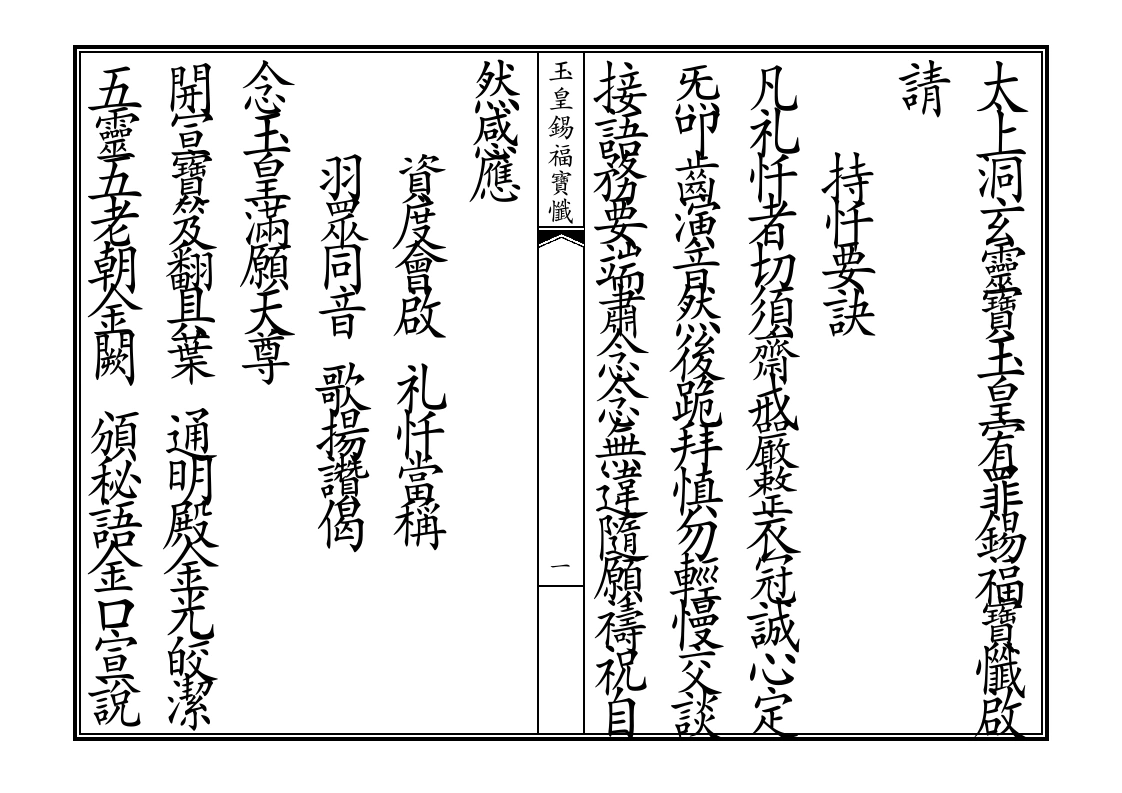 太上洞玄靈寶玉皇宥罪錫福寶懺啟
請
持忏要訣
凡礼忏者切須齋戒嚴整衣冠誠心定
旡卯齒演音然後跪拜慎勿輕慢交談
接語務要端肅念念無違隨願禱祝自
玉皇錫福寶懺
一
然感應
資度會啟 礼忏當稱
羽眾同音 歌揚讚偈
念玉皇滿願天尊
開宣寶笈翻具葉 通明殿金光皎潔
五靈五老朝金闕 頒秘語金口宣說